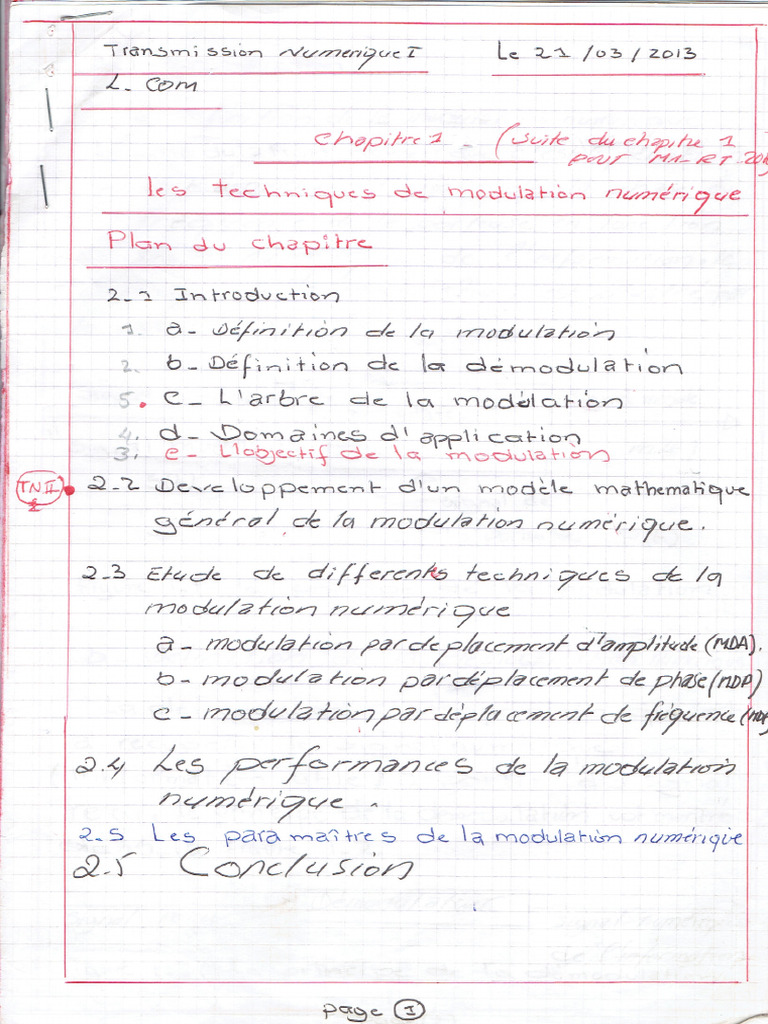 Transmission Numerique I Le 21/03/2013
L. com
Chapitre 1 - (suite du chapitre 1
pour
les techniques de modulation numérique
Plan du chapitre
2-1 Introduction
1. a- Définition de la modulation
2. b- Définition de la démodulation
5. c- L'arbre de la modélation
4. d- Domaines d'application
3. e- L'objectif de la modulation
TNII 2-2 Developpement d'un modèle mathematique
général de la modulation numérique.
2-3 Etude de differents techniques de la
modulation numérique
a- modulation par deplacement d'amplitude (MDA).
b- modulation par déplacement de phase (MDP)
c- modulation par déplacement de fréquence
2.4 Les performances de la modulation
numérique.
2-5 Les paramaîtres de la modulation numérique
2.5 Conclusion
page I